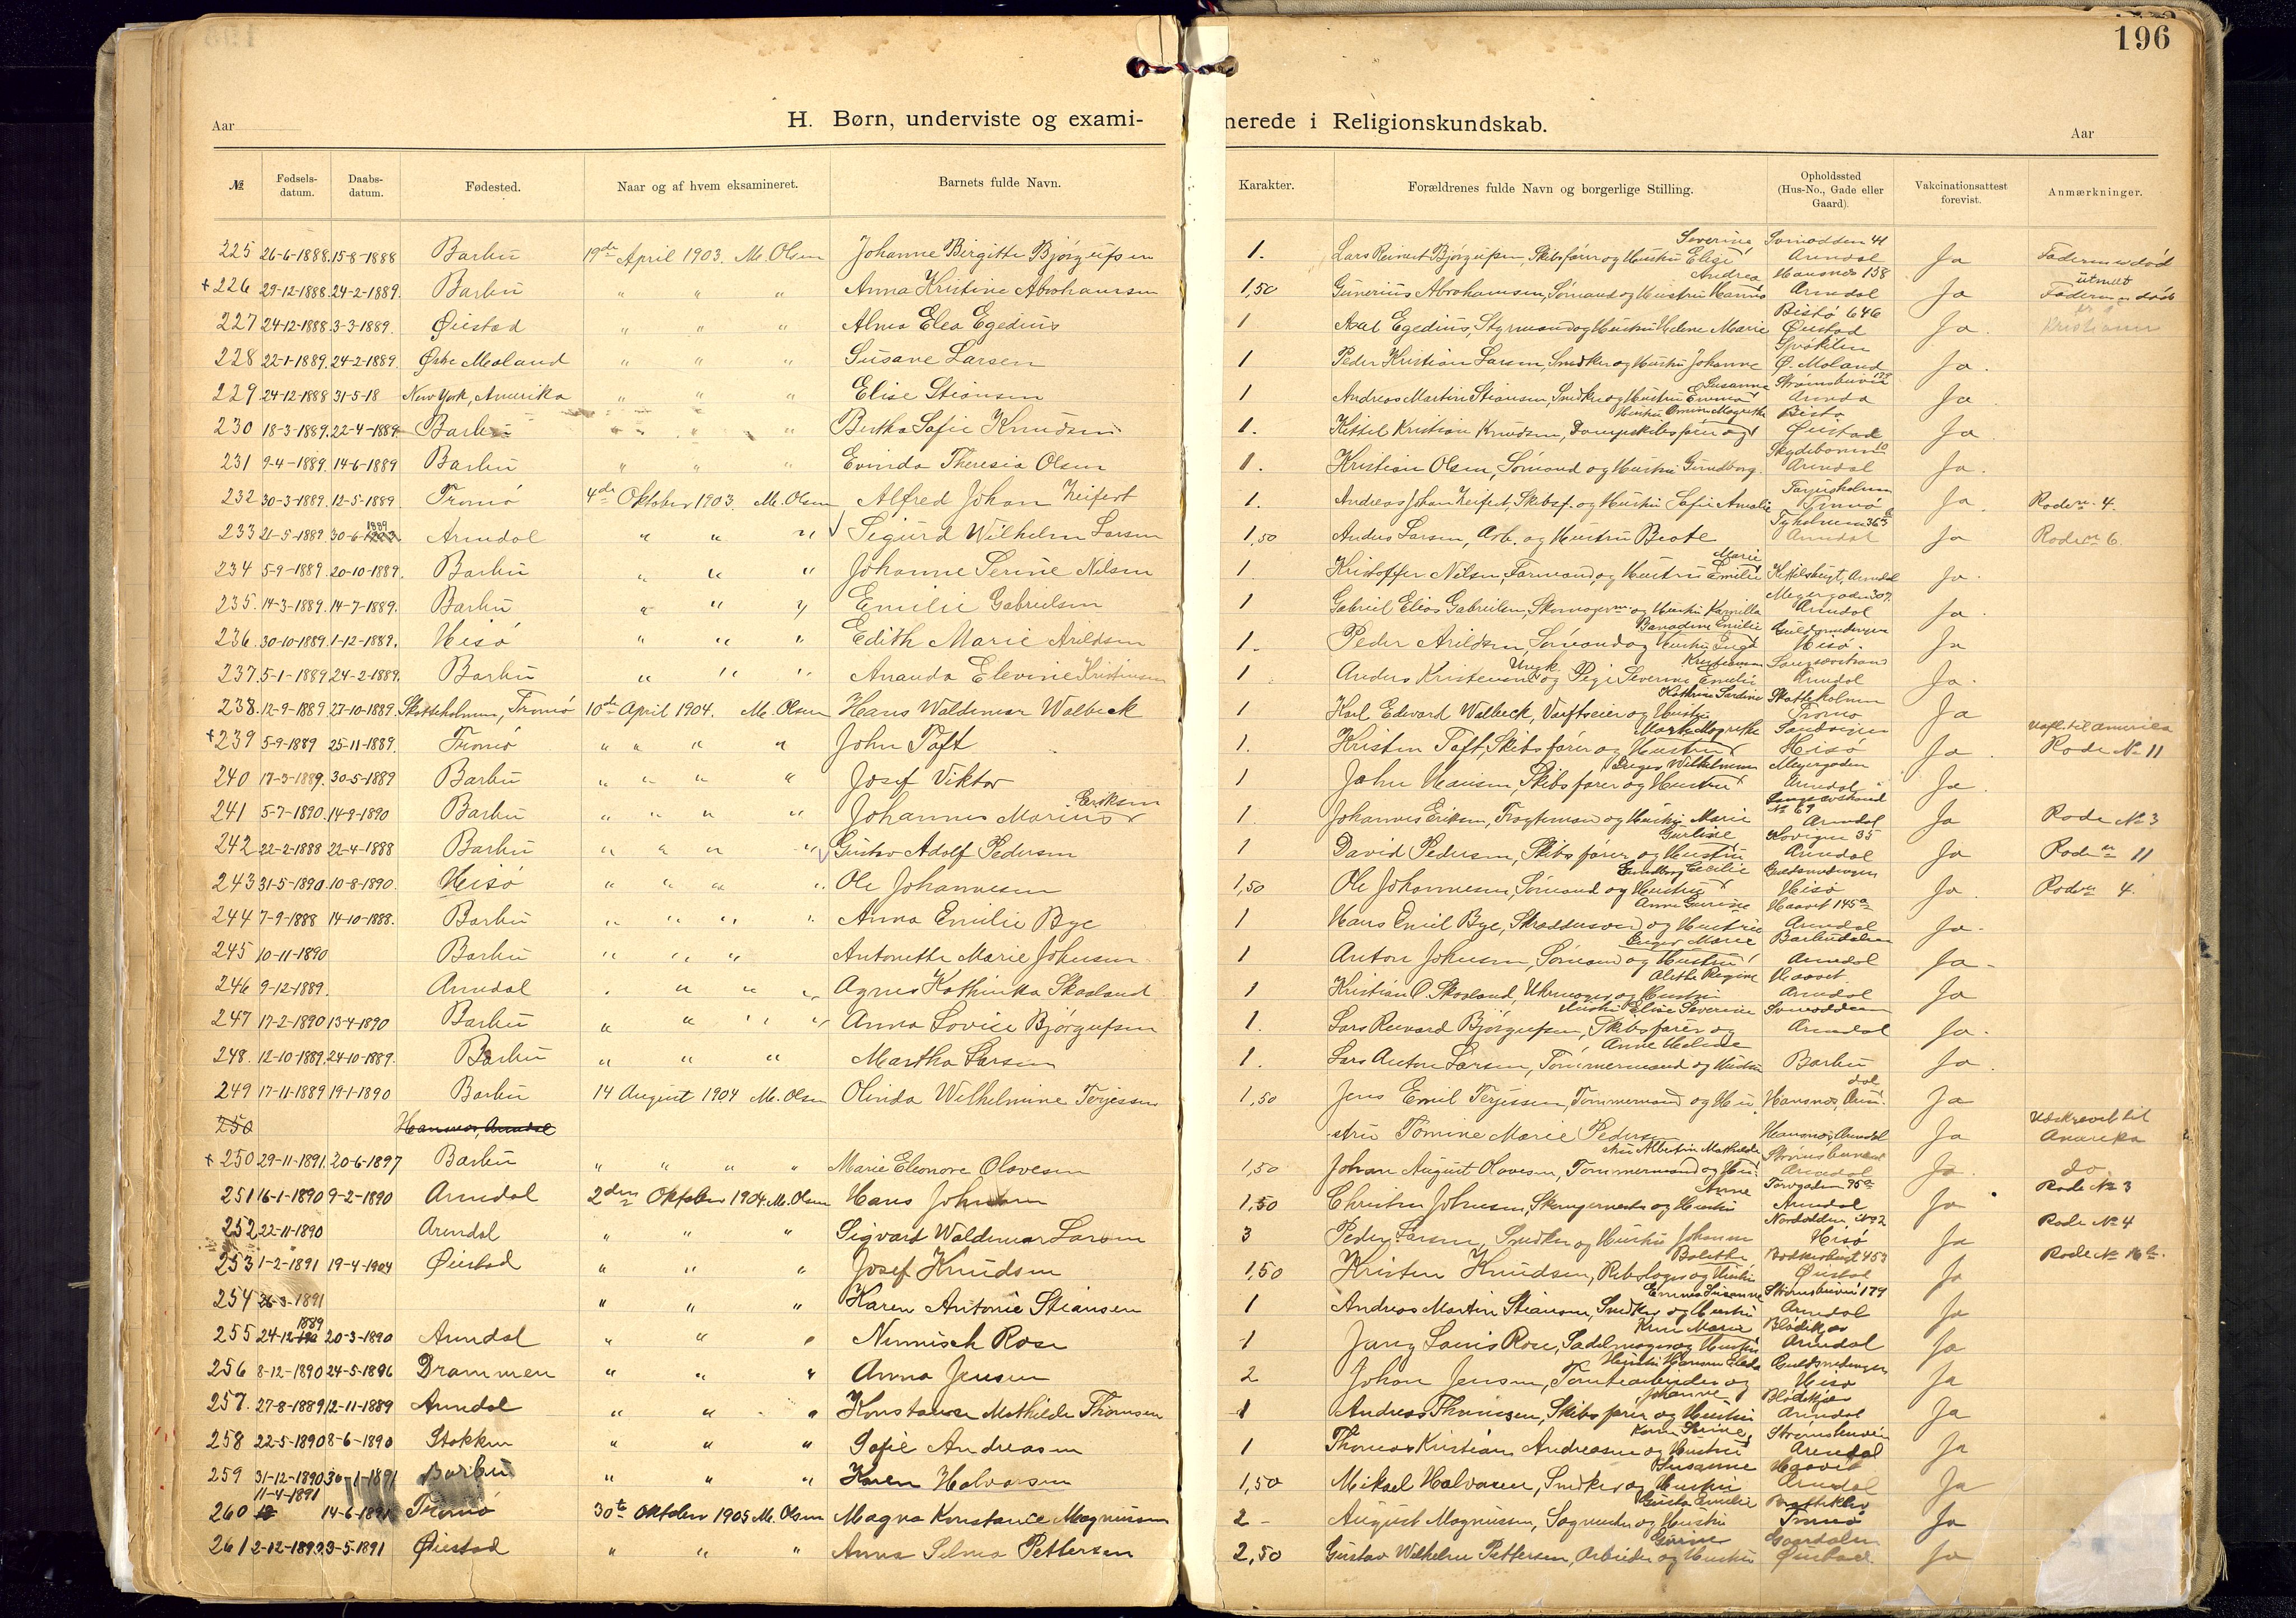 196
Aar
H. Børn, underviste og exami-
nerede i Religionskundskab.
Aar
№ Fødsels-datum. Daabs-datum. Fødested. Naar og af hvem eksamineret. Barnets fulde Navn. Karakter. Forældrenes fulde Navn og borgerlige Stilling. Opholdssted (Hus-No., Gade eller Gaard). Vakcinationsattest forevist. Anmærkninger.
225 26-6-1888. 15-8-1888 Barbu 19de April 1903. M. Olsen Johanne Birgitte Bjørgufsen 1. Lars Reinert Bjørgufsen, Skibsfører og Hustru Elise Severine Arendal Ja
+226 29-12-1888. 24-2-1889. Barbu " " " Anna Kristine Abrahamsen 1,50 Gunerius Abrahamsen, Sømand og Hustru Andrea Hausnes 158 Arendal Ja
227 24-12-1888 3-3-1889. Øiestad " " " Alma Elea Egedius 1 Axel Egedius, Styrmand og Hustru Helene Marie Bistø 646 Øiestad Ja.
228 22-1-1889. 24-2-1889. Østre Moland " " " Susane Larsen 1 Peder Kristian Larsen, Snedker og Hustru Johanne Ø. Moland Ja.
229 24-12-1888 31-5-18 New York, Amerika " " " Elise Stiansen 1 Andreas Martin Stiansen, Snedker og Hustru Emma Susanne Strømsbuvei 179 Arenda Ja
230 18-3-1889. 22-4-1889 Barbu " " " Bertha Sofie Knudsen 1. Kittil Kristian Knudsen, Dampskibsfører og Hustru Magrethe Bistø Øiestad Ja
231 9-4-1889. 14-6-1889 Barbu " " " Evinda Theresia Olsen 1. Kristian Olsen, Sømand og Hustru Gundborg. Arendal Ja.
232 30-3-1889. 12-5-1889 Tromø 4de Oktober 1903. M. Olsen Alfred Johan Zeifert 1. Andreas Johan Zeifert, Skibsf. og Hustru Sofie Amalie Tromø Ja Rode № 4.
233 21-5-1889. 30-6-1889 Arendal " " " Sigurd Wilhelm Larsen 1,50 Anders Larsen, Arb. og Hustru Beate Tyholmen 363 Arendal Ja Rode № 6.
234 5-9-1889. 20-10-1889. Barbu " " " Johanne Serine Nilsen 1. Kristoffer Nilsen, Formand, og Hustru Emilie Marie Kittelsbugt, Arendal Ja.
235. 14-3-1889. 14-7-1889. Barbu " " " Emilie Gabrielsen 1 Gabriel Elias Gabrielsen, Skomager og Hustru Kamilla Meyergaden 307. Arendal Ja
236. 30-10-1889. 1-12-1889. Hisø " " " Edith Marie Arildsen 1. Peder Arildsen, Sømand og Hustru Hisø. Ja
237. 5-1-1889 24-2-1889. Barbu " " " Ananda Elevine Kristensen 1 Anders Kristensen Ungk. og Pige Severine Emelie Arendal Ja.
238. 12-9-1889 27-10-1889. Skatteholmen, Tromø 10de April 1904. M. Olsen Hans Waldemar Walbeck 1 Karl Edward Walbeck, Værftseier og Hustru Kathrine Skatteholmen Tromø Ja
+239 5-9-1889 25-11-1889. Tromø " " " John Toft 1. Kristen Toft, Skibsfører og Hustru Marte Magrethe Hisø Ja til Amerika Rode № 11
240 17-3-1889. 30-5-1889 Barbu " " " Josef Viktor 1 John Hansen, Skibsfører og Hustru Inger Wilhelmine Meyergaden Arendal Ja
241 5-7-1890. 14-9-1890 Barbu " " " Johannes Marius Eriksen 1. Johannes Eriksen, Fragtemand og Hustru Marie № 69 Arendal Ja Rode № 3
242 22-2-1888 22-4-1888 Barbu " " " Gustav Adolf Pedersen 1 David Pedersen, Skibsfører og Hustru Gurline 35 Arendal Ja Rode № 11
243 31-5-1890. 10-8-1890. Hisø " " " Ole Johannesen 1,50 Ole Johannesen, Sømand og Hustru Gundborg Cecilie Guldsmedengen Hisø Ja Rode № 4.
244 7-9-1888 14-10-1888. Barbu " " " Anna Emilie Bye 1 Hans Emil Bye, Skræddersvend og Hustru Anne Gurine Haavet 145a Arendal Ja.
245 10-11-1890 Barbu " " " Antonette Marie Johnsen 1 Anton Johnsen, Sømand og Hustru Inger Marie Barbudalen Arendal Ja
246 9-12-1889. Arendal " " " Agnes Kathinka Skaaland 1 Kristian O. Skaaland, Uhrmager og Hustru Alethe Regine Haavet Arendal Ja
247 17-2-1890 13-4-1890 Barbu " " " Anna Lovise Bjørgufsen 1. Lars Reinard Bjørgufsen, Skibsfører og Hustru Elise Severine Svinodden Arendal Ja.
248. 12-10-1889. 24-10-1889. Barbu " " " Martha Larsen 1. Lars Anton Larsen, Tømmermand og Hustru Anne Barbu Ja
249 17-11-1889 19-1-1890 Barbu 14 August 1904 M. Olsen Olinda Wilhelmine Terjessen 1,50 Jens Emil Terjessen, Tømmermand og Hu- Hausnes, Arendal Ja
250 Hausnes, Arendal stru Tomine Marie Pedersen Hausnes, Arendal Ja Udskrevet til Amerika
+250 29-11-1891. 20-6-1897 Barbu " " " Marie Eleonore Olavesen 1,50 Johan August Olavesen, Tømmermand og Hu- stru Albertin Mathilde Arendal Ja. do.
251 16-1-1890 9-2-1890 Arendal 2den Oktober 1904. M. Olsen Hans Johnsen 1,50 Christen Johnsen, og Hustru Anne Torvgaden 95a Arendal Ja Rode № 3
252 22-11-1890 Arendal " " " Sigvard Waldemar Larsen 3 Peder Larsen, Snedker og Hustru Johanne Hisø Ja Rode № 4
253 1-2-1891 19-4-1904 Øiestad " " " Josef Knudsen 1,50 Kristen Knudsen, Rebslager og Hustru Bolette 453 Øiestad Ja Rode № 16
254 26-3-1891 " " " Karen Antonie Stiansen 1 Andreas Martin Stiansen, Snedker og Hustru Emma Susanne Strømsbuvei 179 Arendal Ja
255 24-12-1889 20-3-1890 Arendal " " " Rose 1 Louis Rose, Sadelmager og Hustru Marie Blødekjær Arendal Ja
256 8-12-1890 24-5-1896 Drammen " " " Anna Jensen 2 Johan Jensen, og Hustru Guldsmedengen Hisø Ja
257. 27-8-1889 12-11-1889 Arendal " " " Konstanse Mathilde Thomsen 1 Andreas Thomsen, Skibsfører og Hustru Johanne Blødekjær Arendal Ja
258 22-5-1890 8-6-1890 Stokken " " " Sofie Andreasen 1 Thomas Kristian Andreasen og Hustru Karen Serine Strømsbuvei Arendal Ja
259 31-12-1890 30-1-1891 Barbu " " " Karen Halvorsen 1,50 Mikael Halvorsen, Snedker og Hustru Susanne Haavet Arendal Ja
260 11-4-1891 14-6-1891 Tromø 30te Oktober 1905 M. Olsen Magna Konstance Magnussen 2 August Magnussen, og Hustru Emilie Brattekleiv Tromø Ja
261 2-12-1890 3-5-1891 Øiestad " " " Anna Selma Pettersen 2,50 Gustav Wilhelm Pettersen, Arbeider og Hustru Gurine Øiestad Ja